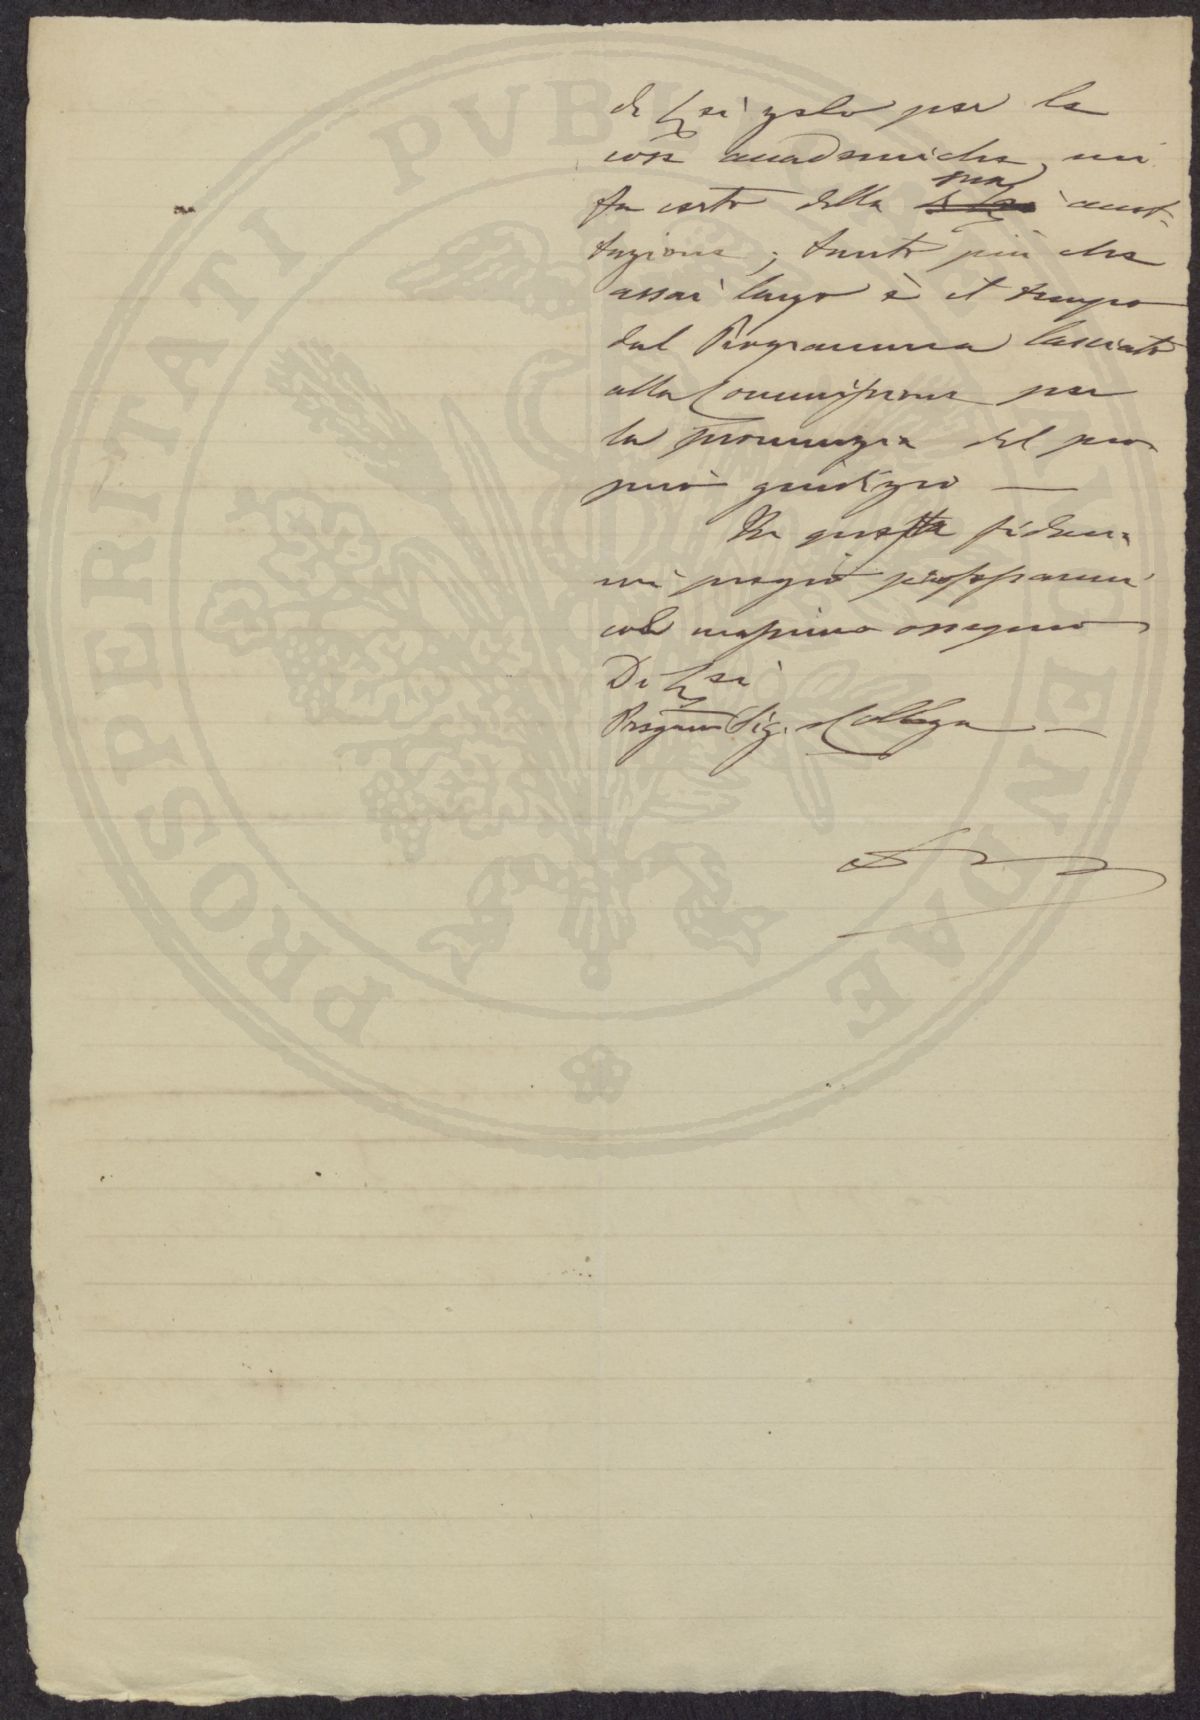 di Lei zelo per le
cose accademiche, mi
fa certo della sua accet-
tazione; tanto più che
assai largo è il tempo
dal Programma lasciato
alla Commissione per
la pronunzia del pro-
prio giudizio —
In questa fiducia
mi pregio professarmi
col massimo ossequio
Di Lei
Pregiam Sig. Collega —
PROSPERITATI PVBLICAE AVGENDAE